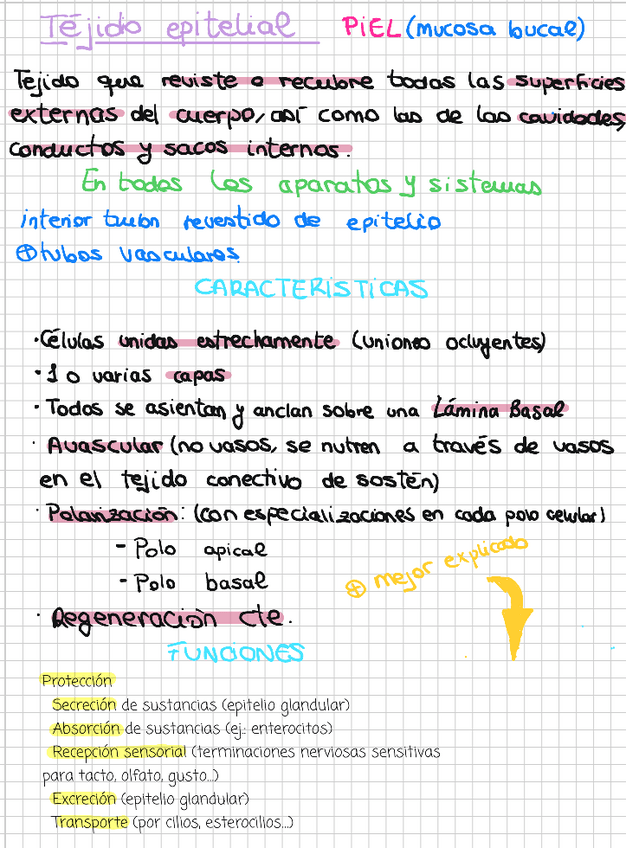 Tejido epitelial PIEL (mucosa bucal)
Tejido que reviste o recubre todas las superficies
externas del cuerpo, así como las de las cavidades,
conductos y sacos internos.
En todos los aparatos y sistemas
interior tmbn revestido de epitelio
⊕ tubos vasculares
CARACTERISTICAS
· Células unidas estrechamente (uniones ocluyentes)
· 1 o varias capas
· Todos se asientan y anclan sobre una Lámina Basal
· Avascular (no vasos, se nutren a través de vasos
en el tejido conectivo de sostén)
· Polarización: (con especializaciones en cada polo celular)
- Polo apical
- Polo basal
⊕ mejor explicado
· Regeneración cte.
FUNCIONES
Protección
Secreción de sustancias (epitelio glandular)
Absorción de sustancias (ej.: enterocitos)
Recepción sensorial (terminaciones nerviosas sensitivas
para tacto, olfato, gusto...)
Excreción (epitelio glandular)
Transporte (por cilios, esterocilios...)